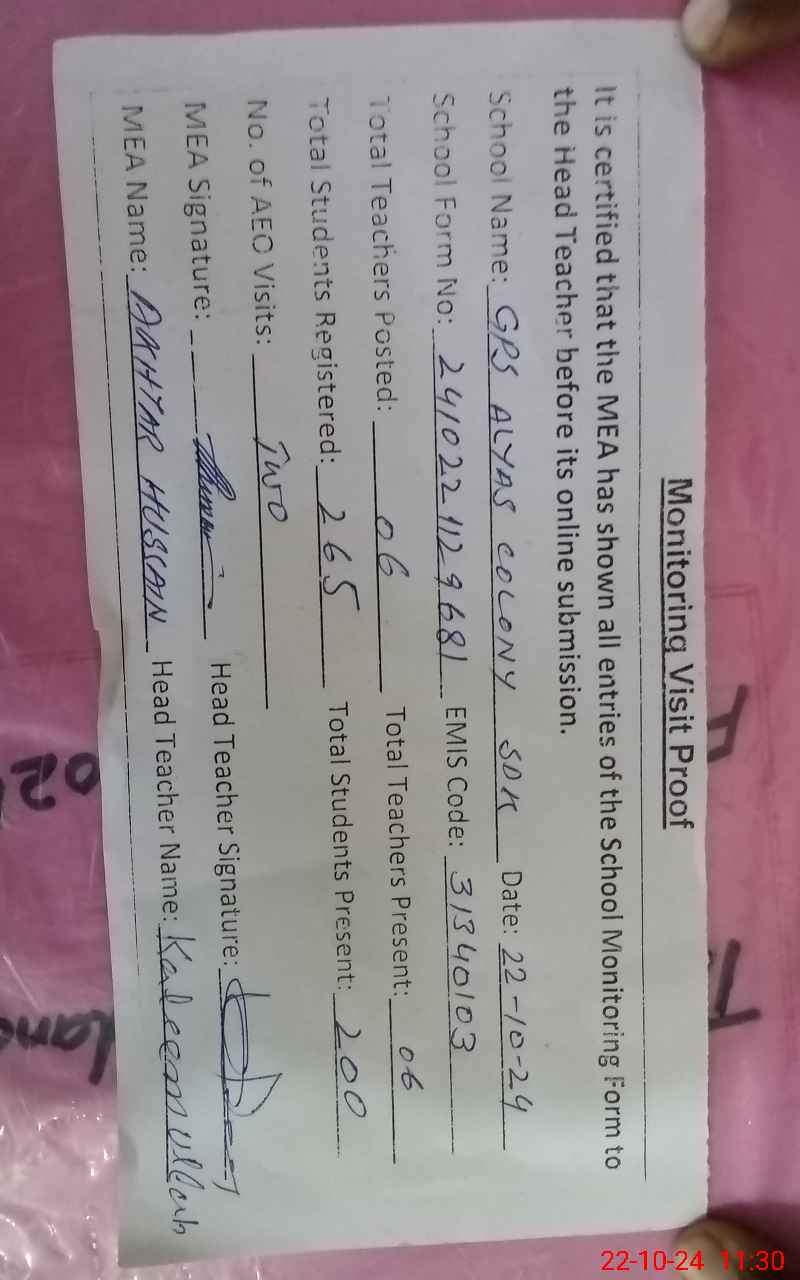 Monitoring Visit Proof
It is certified that the MEA has shown all entries of the School Monitoring Form to
the Head Teacher before its online submission.
School Name: GPS ALYAS COLONY SDK Date: 22-10-24
School Form No: 2410221129681 EMIS Code: 31340103
Total Teachers Posted: 06 Total Teachers Present: 06
Total Students Registered: 265 Total Students Present: 200
No. of AEO Visits: Two
MEA Signature: Head Teacher Signature:
MEA Name: AKHTAR HUSSAIN Head Teacher Name: Kaleemullah
22-10-24 11:30